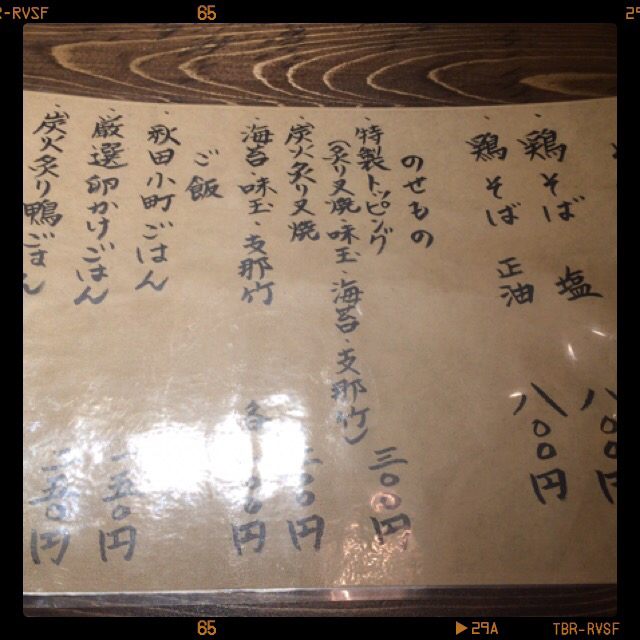 鶏そば 塩 八〇〇円
鶏そば 正油 八〇〇円
のせもの
・特製トッピング
(炙り叉焼・味玉・海苔・支那竹) 三〇〇円
・炭火炙り叉焼 二〇〇円
・海苔・味玉・支那竹 各 一〇〇円
ご飯
・秋田小町ごはん
・厳選卵かけごはん 二五〇円
・炭火炙り鴨ごはん 三五〇円
65
65
29A
TBR-RVSF